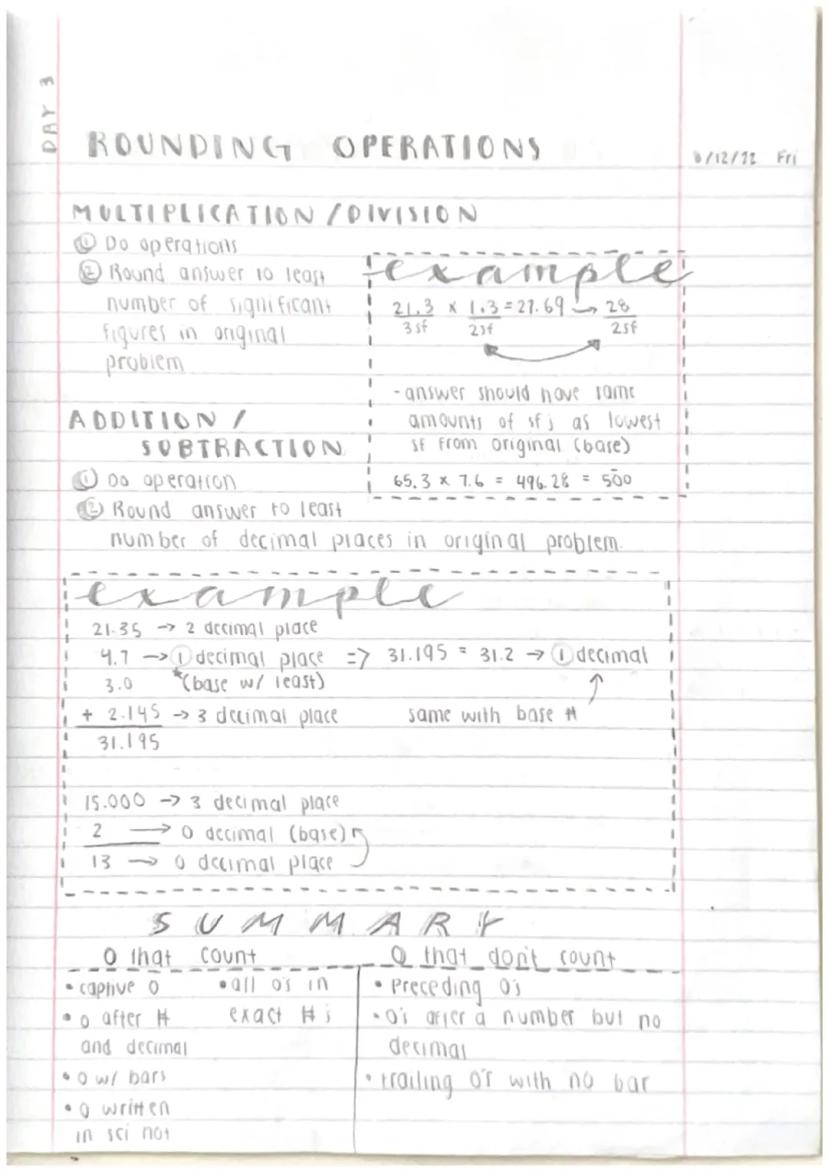 DAY 3
ROUNDING OPERATIONS
/12/22 Fri
MULTIPLICATION / DIVISION
① Do operations
② Round answer to least
number of significant
figures in original
problem
example
21.3 x 1.3 = 27.69 → 28
3sf 2sf 2sf
- answer should have same
amounts of sfs as lowest
sf from original (base)
65.3 x 7.6 = 496.28 = 50̄0
ADDITION /
SUBTRACTION
① Do operation
② Round answer to least
number of decimal places in original problem.
example
21.35 → 2 decimal place
4.7 → ① decimal place => 31.195 = 31.2 → ① decimal
3.0 *(base w/ least)
+ 2.145 → 3 decimal place same with base #
31.195
15.000 → 3 decimal place
2 → 0 decimal (base)
13 → 0 decimal place
SUMMARY
0 that count
• captive 0
• 0 after #
and decimal
• 0 w/ bars
• 0 written
in sci not
• all 0's in
exact #s
0 that don't count
• Preceding 0's
• 0's after a number but no
decimal
• trailing 0's with no bar